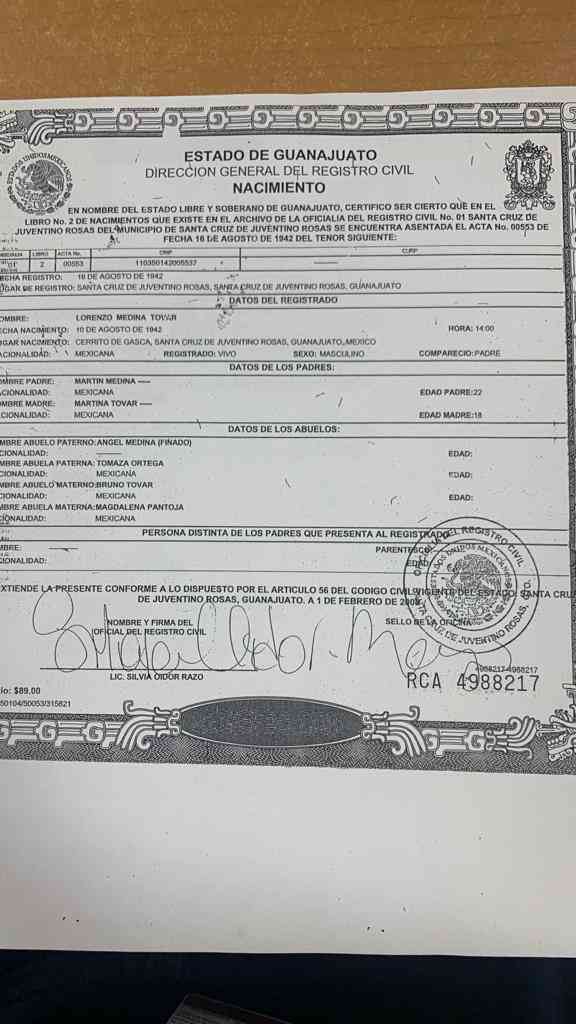 ESTADO DE GUANAJUATO
DIRECCION GENERAL DEL REGISTRO CIVIL
NACIMIENTO
EN NOMBRE DEL ESTADO LIBRE Y SOBERANO DE GUANAJUATO, CERTIFICO SER CIERTO QUE EN EL
LIBRO No. 2 DE NACIMIENTOS QUE EXISTE EN EL ARCHIVO DE LA OFICIALIA DEL REGISTRO CIVIL No. 01 SANTA CRUZ DE
JUVENTINO ROSAS DEL MUNICIPIO DE SANTA CRUZ DE JUVENTINO ROSAS SE ENCUENTRA ASENTADA EL ACTA No. 00553 DE
FECHA 16 DE AGOSTO DE 1942 DEL TENOR SIGUIENTE:
LIBRO ACTA No. CRIP CURP
01 2 00553 110350142005537
ECHA REGISTRO: 16 DE AGOSTO DE 1942
UGAR DE REGISTRO: SANTA CRUZ DE JUVENTINO ROSAS, SANTA CRUZ DE JUVENTINO ROSAS, GUANAJUATO
DATOS DEL REGISTRADO
OMBRE: LORENZO MEDINA TOVAR
ECHA NACIMIENTO: 10 DE AGOSTO DE 1942 HORA: 14:00
GAR NACIMIENTO: CERRITO DE GASCA, SANTA CRUZ DE JUVENTINO ROSAS, GUANAJUATO, MEXICO
ACIONALIDAD: MEXICANA REGISTRADO: VIVO SEXO: MASCULINO COMPARECIO: PADRE
DATOS DE LOS PADRES:
OMBRE PADRE: MARTIN MEDINA ----
ACIONALIDAD: MEXICANA EDAD PADRE: 22
OMBRE MADRE: MARTINA TOVAR ----
CIONALIDAD: MEXICANA EDAD MADRE: 18
DATOS DE LOS ABUELOS:
MBRE ABUELO PATERNO: ANGEL MEDINA (FINADO)
CIONALIDAD: ---- EDAD:
MBRE ABUELA PATERNA: TOMAZA ORTEGA
CIONALIDAD: MEXICANA EDAD:
MBRE ABUELO MATERNO: BRUNO TOVAR
CIONALIDAD: MEXICANA EDAD:
MBRE ABUELA MATERNA: MAGDALENA PANTOJA
CIONALIDAD: MEXICANA
PERSONA DISTINTA DE LOS PADRES QUE PRESENTA AL REGISTRADO
MBRE: ---- PARENTESCO:
CIONALIDAD: EDAD:
XTIENDE LA PRESENTE CONFORME A LO DISPUESTO POR EL ARTICULO 56 DEL CODIGO CIVIL VIGENTE DEL ESTADO. SANTA CRUZ
DE JUVENTINO ROSAS, GUANAJUATO. A 1 DE FEBRERO DE
NOMBRE Y FIRMA DEL SELLO DE LA OFICINA
OFICIAL DEL REGISTRO CIVIL
LIC. SILVIA OIDOR RAZO
4988217-4988217
RCA 4988217
io: $89.00
50104/50053/315821
ESTADOS UNIDOS MEXICANOS
OFICIALIA DEL REGISTRO CIVIL
ESTADOS UNIDOS MEXICANOS
SANTA CRUZ DE JUVENTINO ROSAS, GTO.